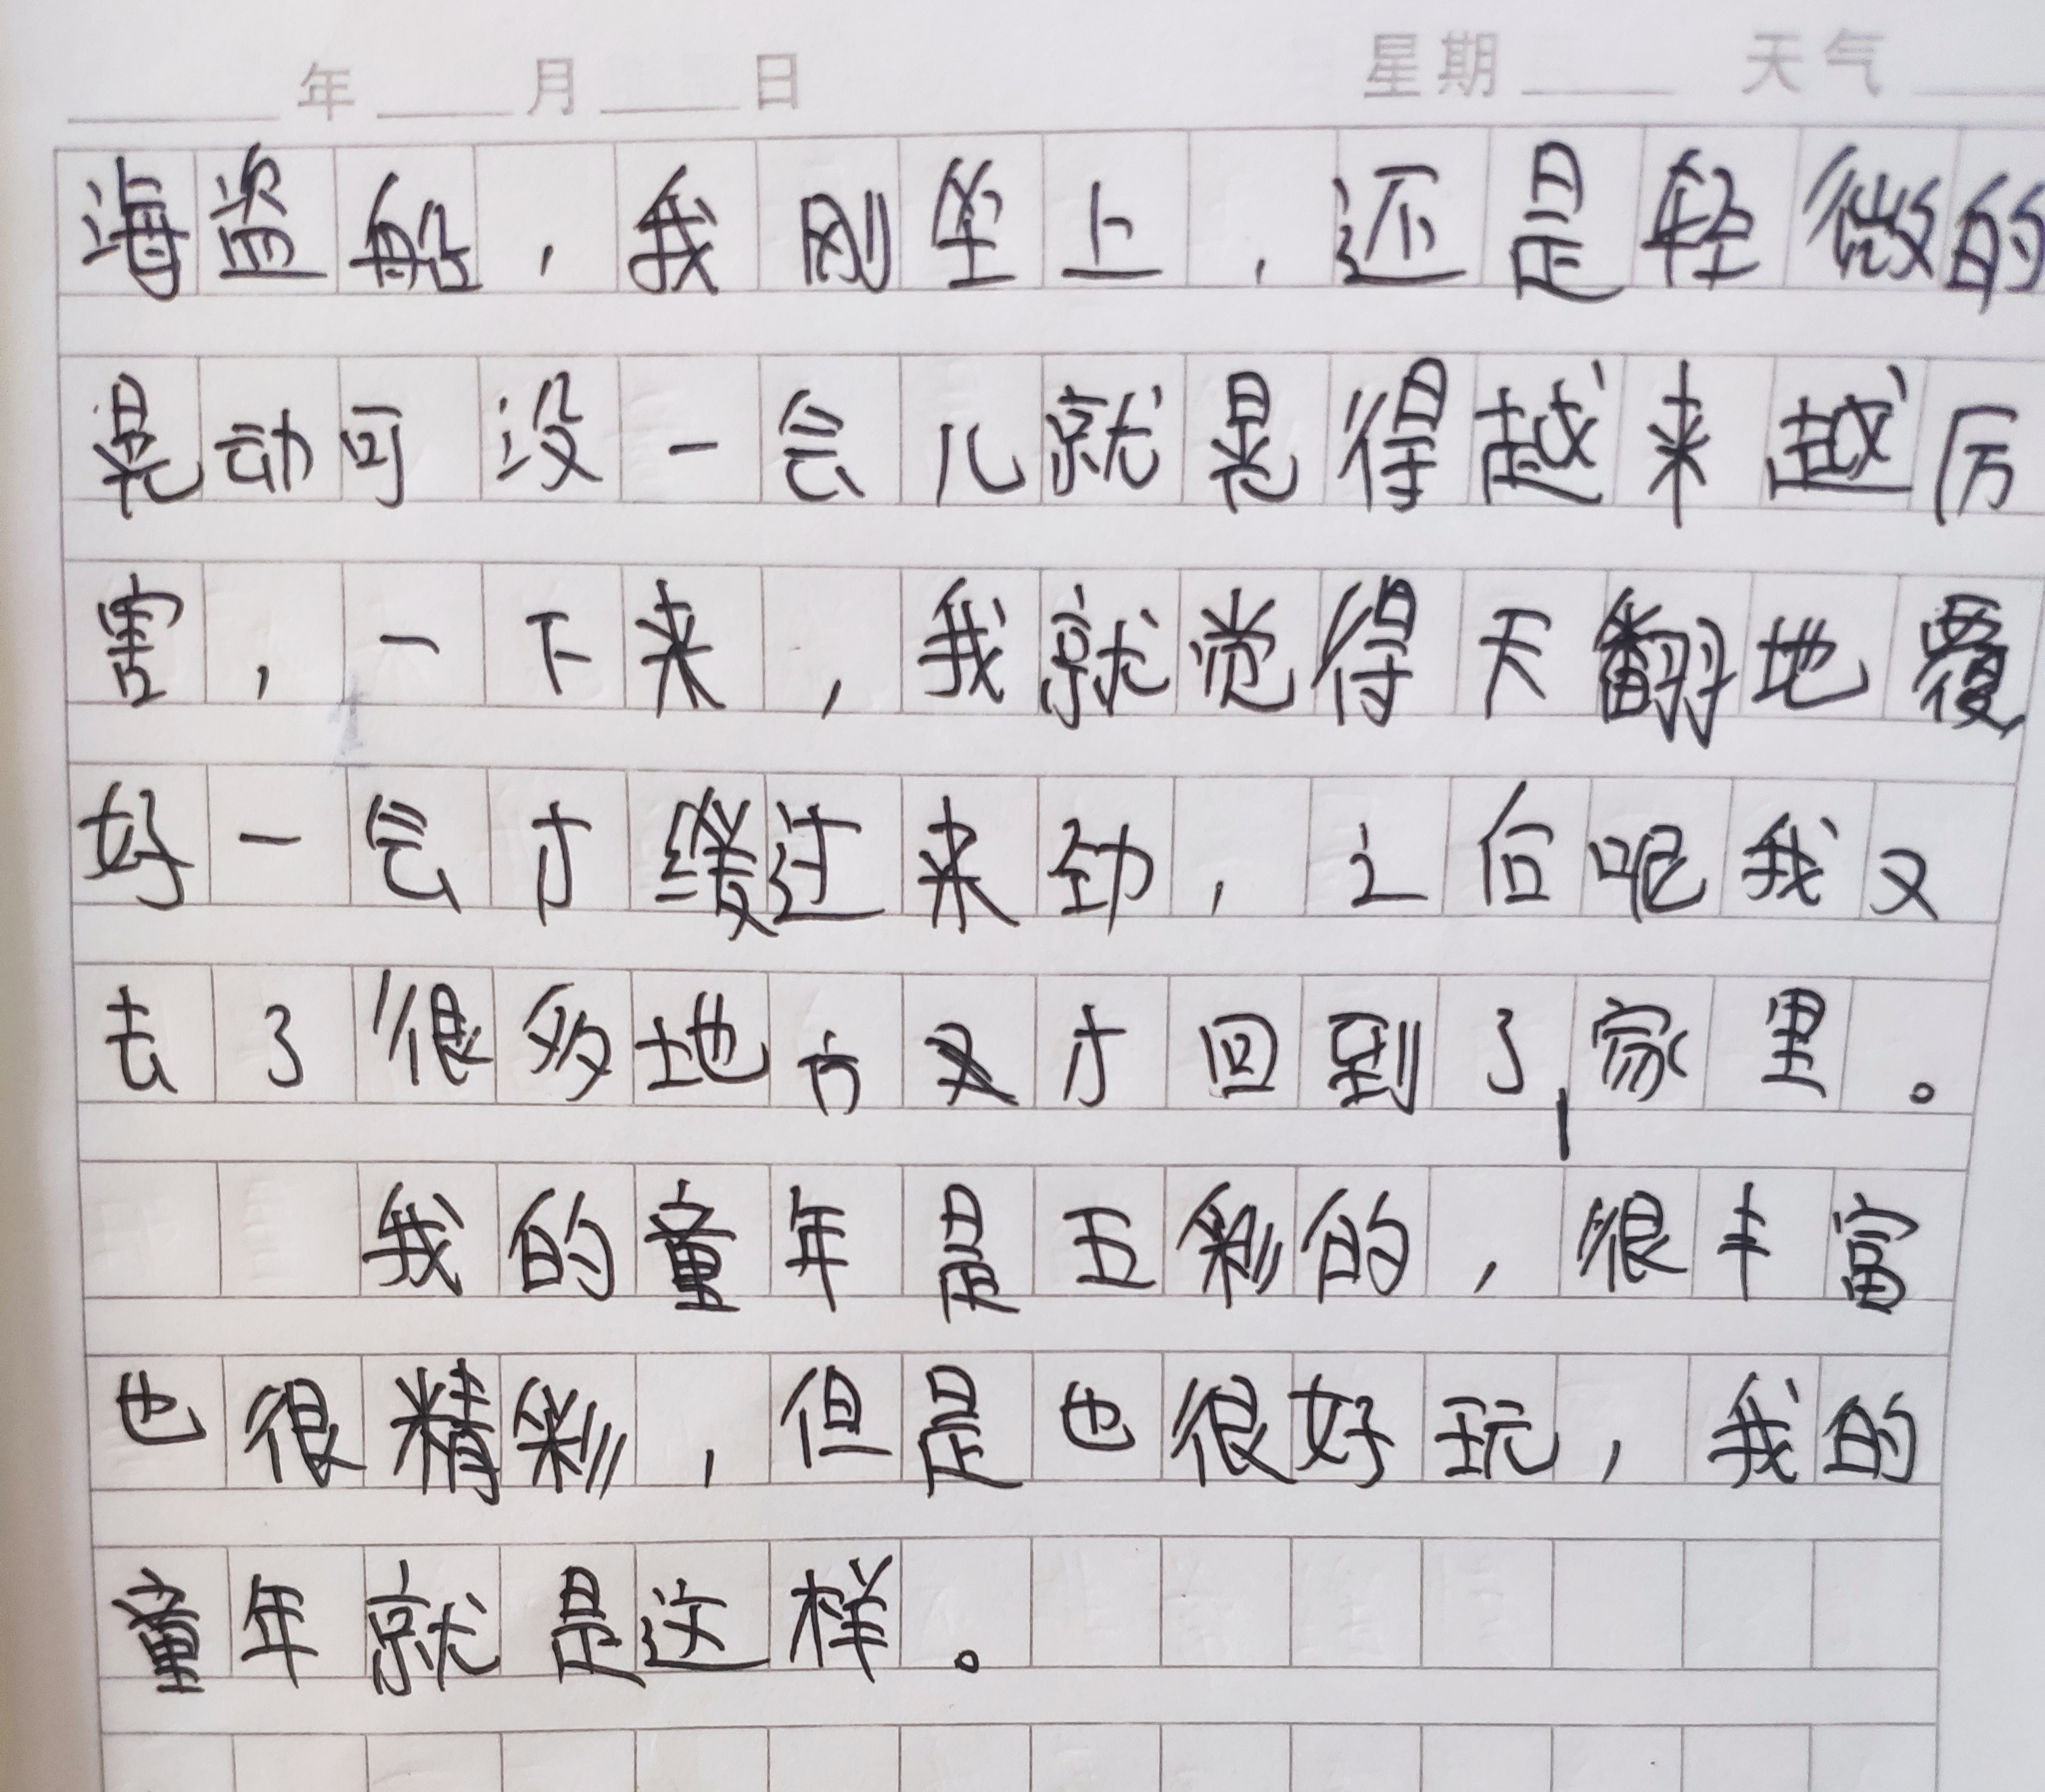 年 月 日 星期 天气
海盗船，我刚坐上，还是轻微的
晃动可没一会儿就晃得越来越厉
害，一下来，我就觉得天翻地覆
好一会才缓过来劲，之后呢我又
去了很多地方才回到了家里。
我的童年是五彩的，很丰富
也很精彩，但是也很好玩，我的
童年就是这样。